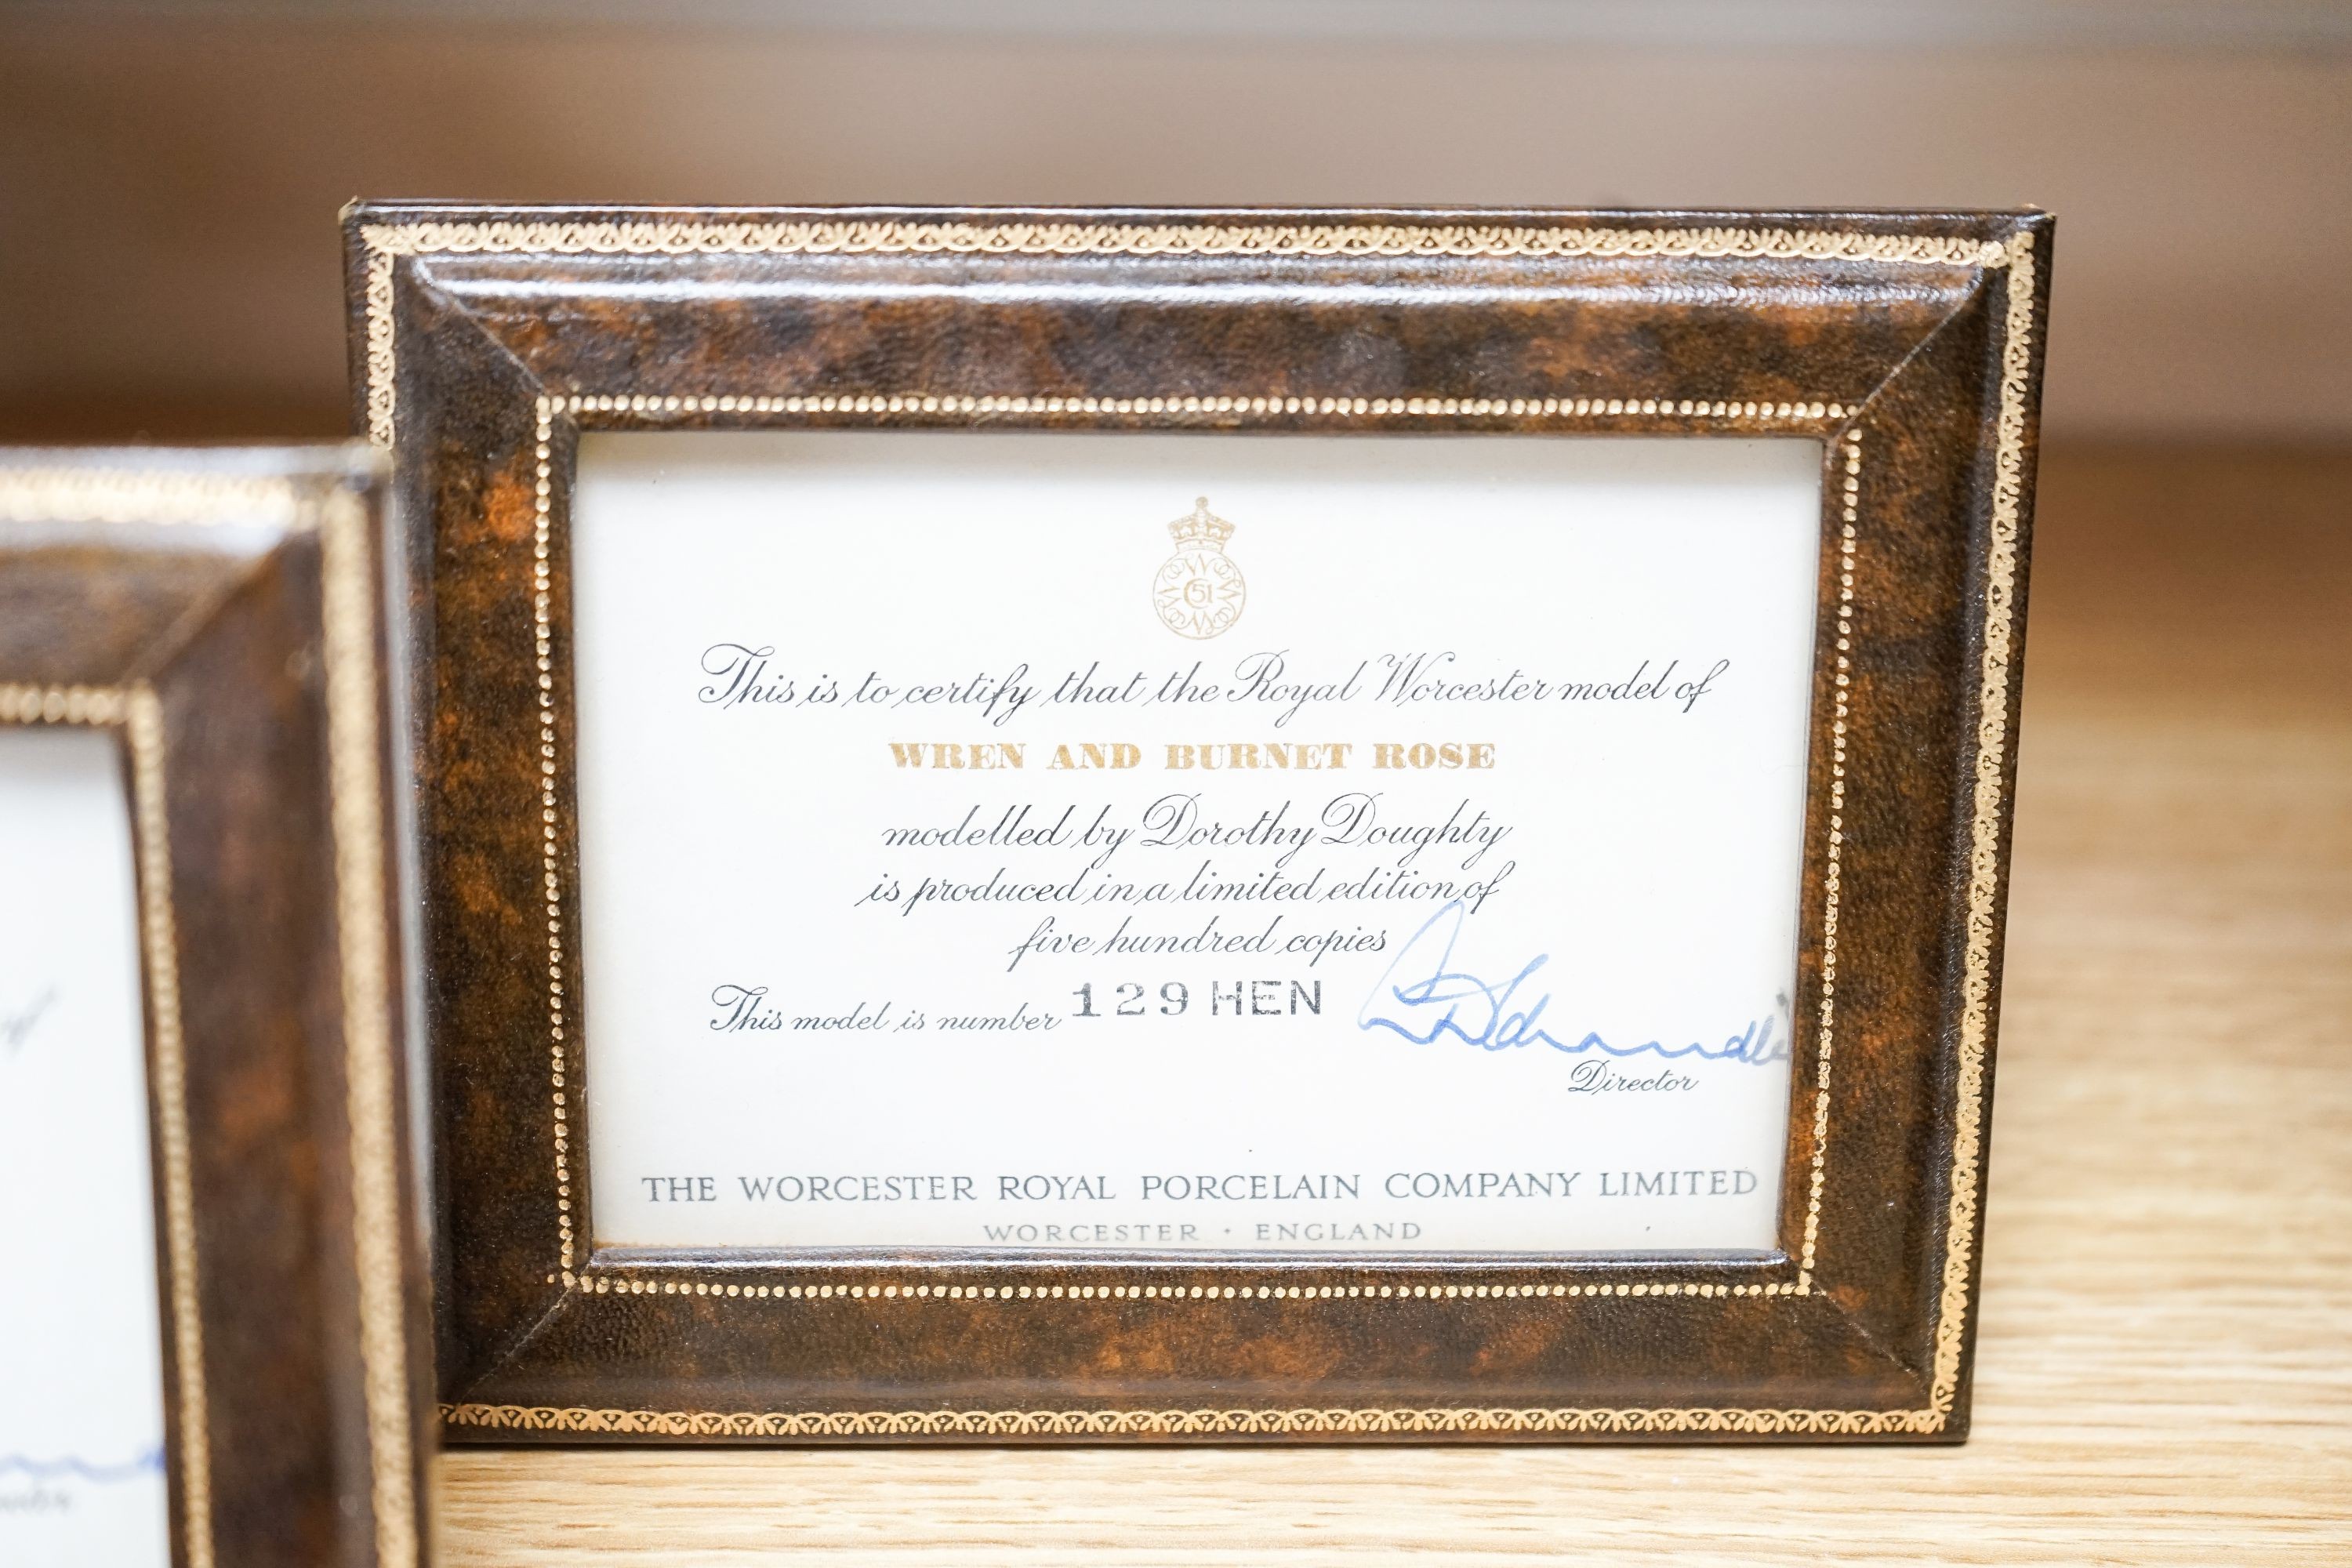 51
This is to certify that the Royal Worcester model of
WREN AND BURNET ROSE
modelled by Dorothy Doughty
is produced in a limited edition of
five hundred copies
This model is number 129 HEN
Director
THE WORCESTER ROYAL PORCELAIN COMPANY LIMITED
WORCESTER · ENGLAND
of